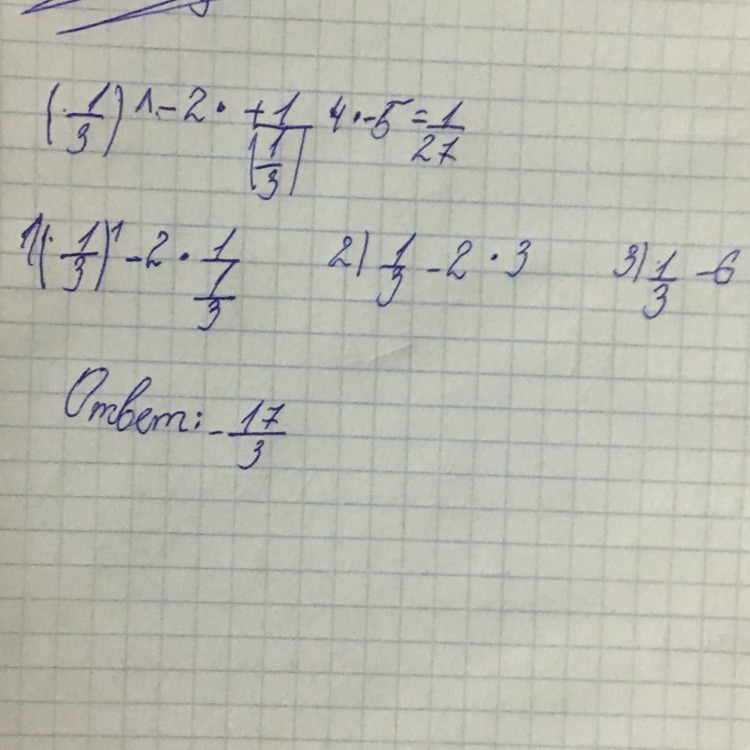 (·1/3)^1 - 2 · +1/|1/3| 4·-5 = 1/27
1) (·1/3)^1 - 2 · 1/(1/3) 2) 1/3 - 2 · 3 3) 1/3 - 6
Ответ: -17/3